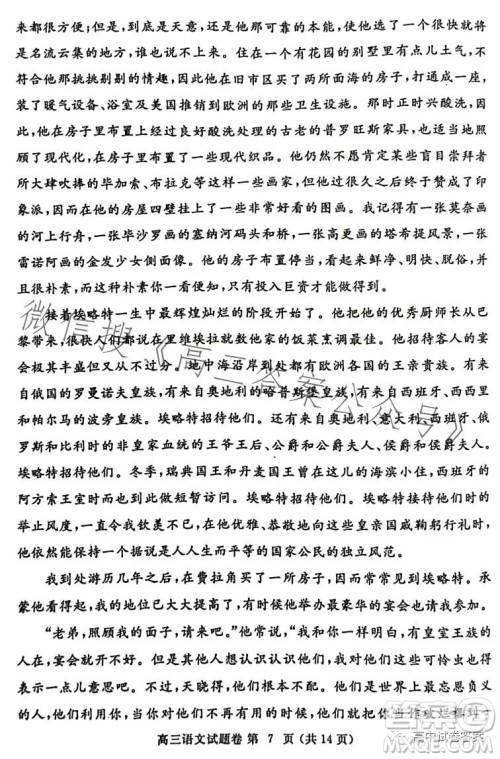 来都很方便；但是，天下总有风云变幻的时候，他那可靠的本能，使他选了一个很快就将
是名流云集的地方，谁也说不上来。住在一个有花园的别墅里有点儿土气，不
符合他那挑挑剔剔的情趣，因此他在旧市区买了两所面海的房子，打通成一座，
装了暖气设备、浴室及美国推销到欧洲的那些卫生设施。那时正时兴酸洗，因
此，他在房子里布置上了经过良好酸洗处理的古老的普罗旺斯家具，也适当地照
顾了现代化，在房子里布置了一些现代织品。他仍然不肯接受某些盲目崇拜者
所大肆吹捧的毕加索、布拉克等这些一些画家，但他过很久之后已经转向了印
象派，因而在他的房屋四壁挂上了一些非常好看的图画。我记得有一张莫奈画
的河上行舟，一张毕沙罗画的塞纳河码头和桥，一张高更画的塔希提风景，一张
雷诺阿画的金发少女侧面像。他的房子布置停当，看起来鲜亮、明快、脱俗，并
且很朴素，而这种朴素，你知道，只有投入巨资才能做得到。
接着埃略特一生中最辉煌灿烂的阶段开始了。他把他的优秀厨师长从巴
黎带来，很快人们都说在里维埃拉就数他家的饭菜烹调最佳。他招待客人的宴
会极其丰盛但又从不过分。地中海沿岸到处都有欧洲各国的王亲贵族。有
来自俄国的罗曼诺夫皇族，有来自奥地利的哈普斯堡皇族，有来自西班牙、西西
里和帕尔马的波旁皇族。有来自奥地利、意大利、西班牙、俄
罗斯和比利时的非皇家血统的王爷王后、公爵和公爵夫人、侯爵和侯爵夫人。
埃略特招待他们。冬季，瑞典国王和丹麦国王曾在这儿的海滨小住，西班牙的
阿方索王室时时到此做短暂访问。埃略特招待他们。埃略特接待他们时的
举止风度，一直令我钦美不已，在他优雅、恭敬地向这些皇亲国戚鞠躬行礼时，
他依然能保持一个据说是人人生而平等的国家公民的独立风范。
我到处游历几年之后，在费拉角买了一所房子，因而常常见到埃略特。承
蒙他看得起，我的地位已大大提高了，他有时举办最豪华的宴会也请我参加。
“老弟，照顾我的面子，请来吧。”他常说，“我和你一样明白，有皇室王族的
人在，宴会就开不好。但是别的人都想认识认识他们，我想对这些可怜虫也得
表示一点儿意思吧。不过，天晓得他们根本不配。他们是世界上最忘恩负义的
人，他们利用你，而当他们不再有用的时候，他们就把你
高三语文试题卷 第 7 页（共 14 页）
微信搜《高三答案公众号》
高中试卷答案